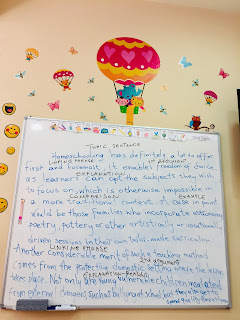 TOPIC SENTENCE
Homeschooling has definitely a lot to offer
LINKING PHRASE 1st ARGUMENT
First and foremost, it enables freedom of choice
EXPLANATION
as learners can get the subjects they wish
to focus on, which is otherwise impossible in
COMPARISON EXAMPLE
a more traditional context. A case in point
would be those families who incorporate astronomy
poetry, pottery or other artistically or vocationally
driven sessions in their own tailor-made curriculum.
LINKING PHRASE
Another considerable merit of such teaching method
2nd ARGUMENT
comes from the protecting domestic setting where the lesson
EXPLANATION-REASON
takes place. Not only are young vulnerable children insulated
from external such as bullying at school but they also get to
quality education